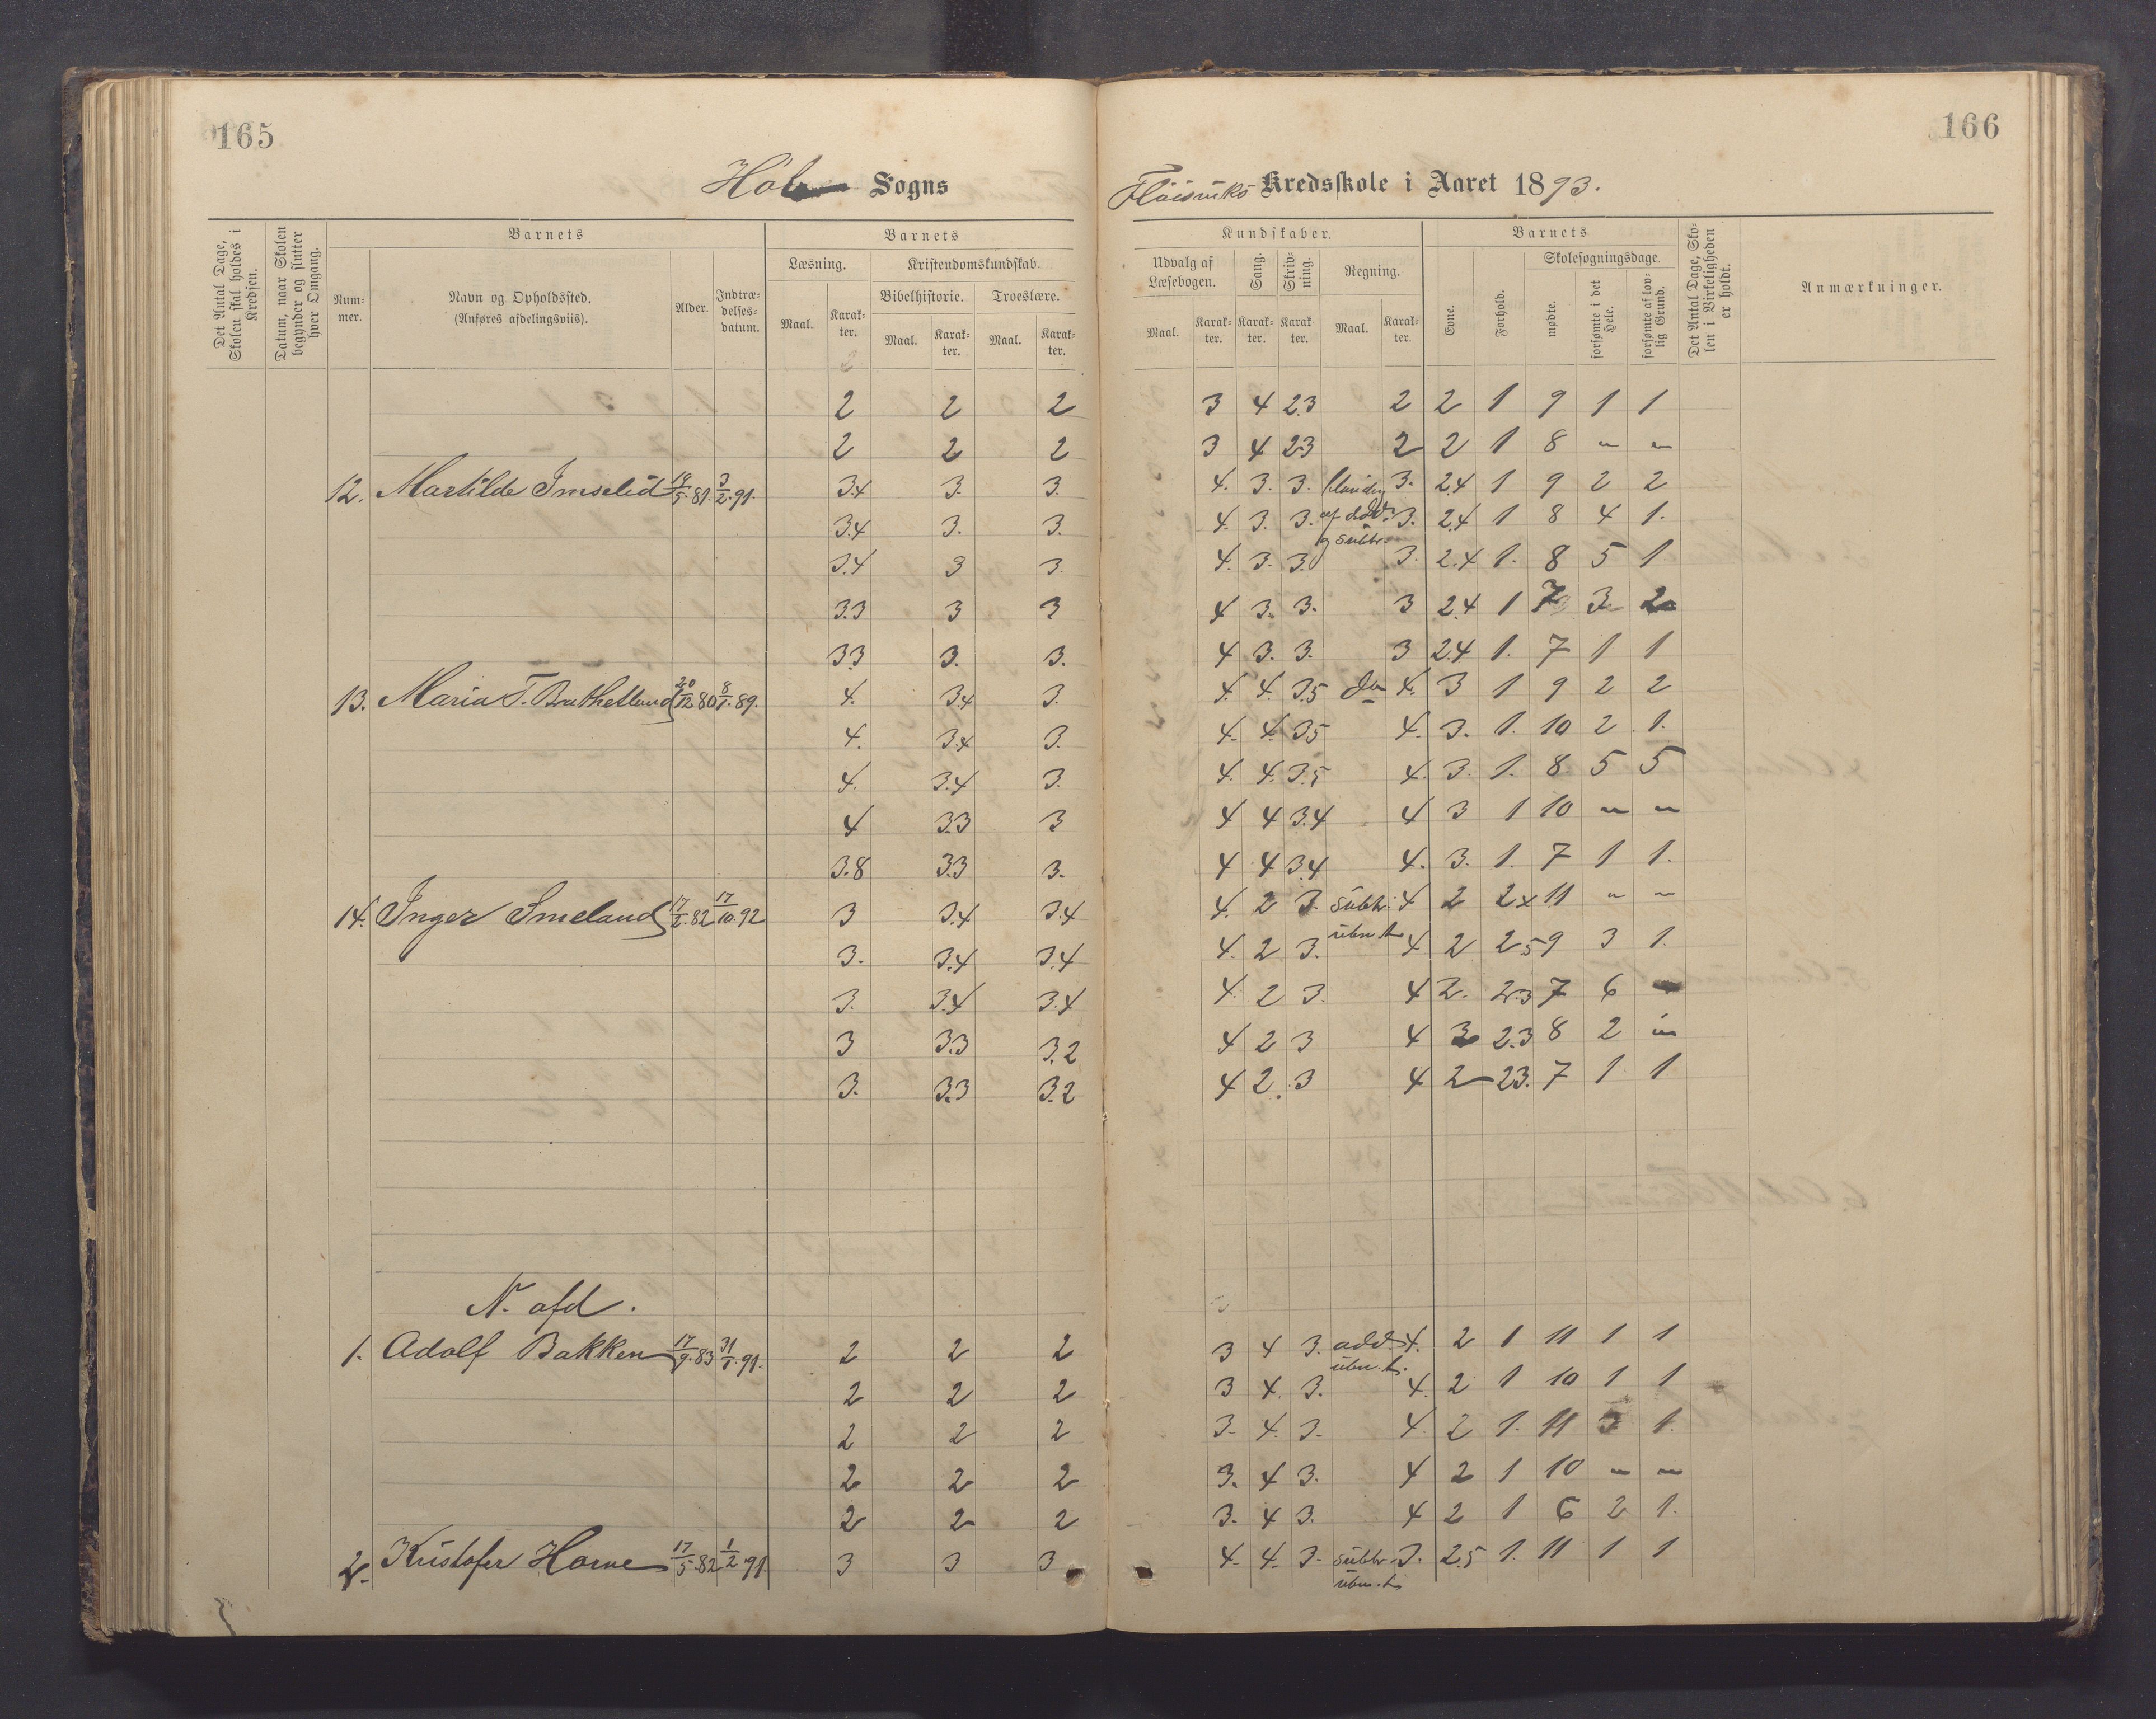 165
166
Høle Sogns
Fløisviks Kredsskole i Aaret 1893.
Det Antal Dage, Skolen skal holdes i Kredsen.
Datum, naar Skolen begynder og slutter hver Omgang.
Barnets
Nummer.
Navn og Opholdssted.
(Anføres afdelingsviis).
Alder.
Indtrædelsesdatum.
Barnets
Læsning.
Maal.
Karakter.
Kristendomskundskab.
Bibelhistorie.
Maal.
Karakter.
Troeslære.
Maal.
Karakter.
Kundskaber.
Udvalg af Læsebogen.
Maal.
Karakter.
Sang.
Karakter.
Skrivning.
Karakter.
Regning.
Maal.
Karakter.
Barnets
Evne.
Forhold.
Skolesøgningsdage.
mødte.
forsømte i det Hele.
forsømte af lovlig Grund.
Det Antal Dage, Skolen i Virkeligheden er holdt.
Anmærkninger.
2 2 2 3 4 2.3 2 2 1 9 1 1
2 2 2 3 4 2.3 2 2 1 8 " "
12. Martilde Imselid 19/5.81. 3/2.91. 3.4 3. 3. 4. 3. 3. 3. 2.4 1 9 2 2
3.4 3. 3. 4. 3. 3. af add. 3. 2.4 1 8 4 1.
3.4 3 3. 4. 3. 3. og subtr. 3. 2.4 1. 8 5 1.
3.3 3 3 4 3. 3. 3 2.4 1 7 3 2
3.3 3. 3. 4 3. 3. 3 2.4 1. 7 1 1
13. Maria T. Brathetland 20/12.80 8/1.89. 4. 3.4 3. 4. 4. 3.5 do 4. 3 1 9 2 2
4. 3.4 3. 4. 4. 3.5 4. 3. 1. 10 2 1.
4. 3.4 3. 4. 4. 3.5 4. 3. 1. 8 5 5
4 3.3 3 4 4 3.4 4 3 1 10 " "
3.8 3.3 3. 4 4 3.4 4. 3. 1. 7 1 1.
14. Inger Smeland 17/2.82 17/10.92 3 3.4 3.4 4. 2 3. subtr. 4 2 2 11 " "
3. 3.4 3.4 4. 2 3. ubn. t. 4 2 2.5 9 3 1.
3. 3.4 3.4 4. 2 3. 4 2. 2.3 7 6
3 3.3 3.2 4 2 3 4 2 2.3 8 2
3. 3.3 3.2 4 2. 3 4 2 2.3. 7 1 1
N. afd.
1. Adolf Bakken 17/9.83 31/1.91. 2 2 2 3 4 3. add. 4. 2 1 11 1 1
2 2 2 3 4. 3. ubn. t. 4. 2 1 10 1 1
2 2 2 3. 4. 3. 4. 2 1. 11 3 1.
2 2 2 3. 4 3. 4 2 1 10 " "
2 2 2 3. 4 3. 4 2 1 6 2 1.
2. Kristofer Horne 17/5.82 1/2.91. 3 3 3 4. 4. 3. subtr. 3. 2.5 1. 11 1 1
ubn. t.